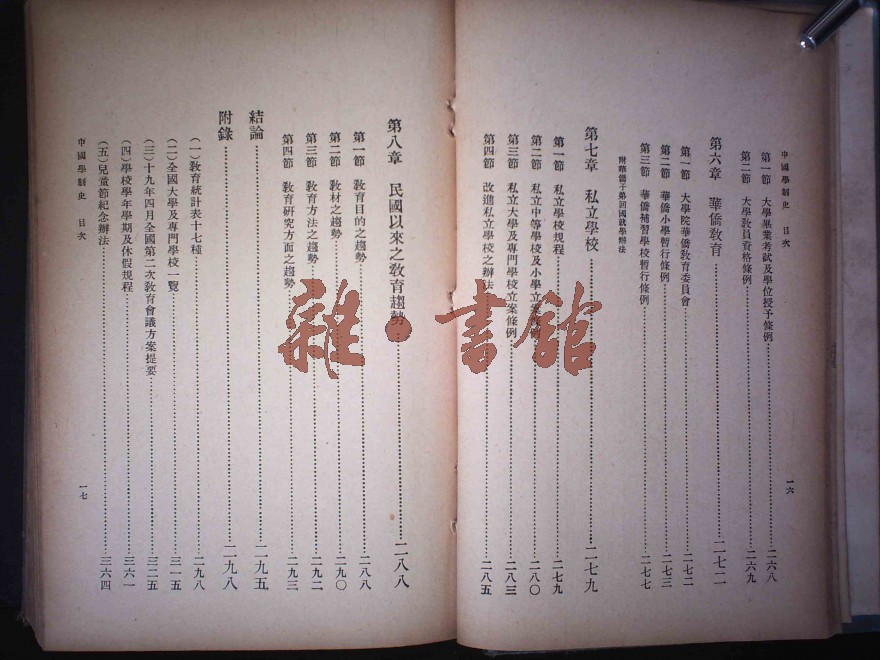 中國學制史 目次
一六
第一節 大學畢業考試及學位授予條例……二六八
第二節 大學教員資格條例……二六九
第六章 華僑教育……二七二
第一節 大學院華僑教育委員會……二七二
第二節 華僑小學暫行條例……二七三
第三節 華僑補習學校暫行條例……二七七
附華僑子弟回國就學辦法
第七章 私立學校……二七九
第一節 私立學校規程……二七九
第二節 私立中等學校及小學立案條例……二八〇
第三節 私立大學及專門學校立案條例……二八三
第四節 改進私立學校之辦法……二八五
第八章 民國以來之教育趨勢……二八八
第一節 教育目的之趨勢……二八八
第二節 教材之趨勢……二九〇
第三節 教育方法之趨勢……二九二
第四節 教育研究方面之趨勢……二九三
結論……二九五
附錄……二九八
(一)教育統計表十七種……二九八
(二)全國大學及專門學校一覽……三一五
(三)十九年四月全國第二次教育會議方案提要……三二五
(四)學校學年學期及休假規程……三六一
(五)兒童節紀念辦法……三六四
中國學制史 目次
一七
雜·書館